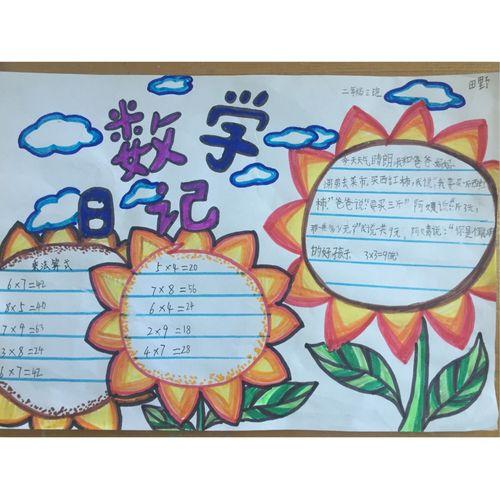 田野
二年级三班
数学
日记
今天天气晴朗,我和爸爸、妈妈、
一起去菜市买西红柿,我说:"我要买西红
柿"爸爸说:"要买三斤"阿姨说:"1斤3元,
那一共多少元?"我说一共9元,阿姨说:"你是个聪明
的好孩子 3×3=9(元)
乘法算式
6×7=42
8×5=40
7×9=63
3×8=24
6×7=42
5×4=20
7×8=56
6×4=24
2×9=18
4×7=28